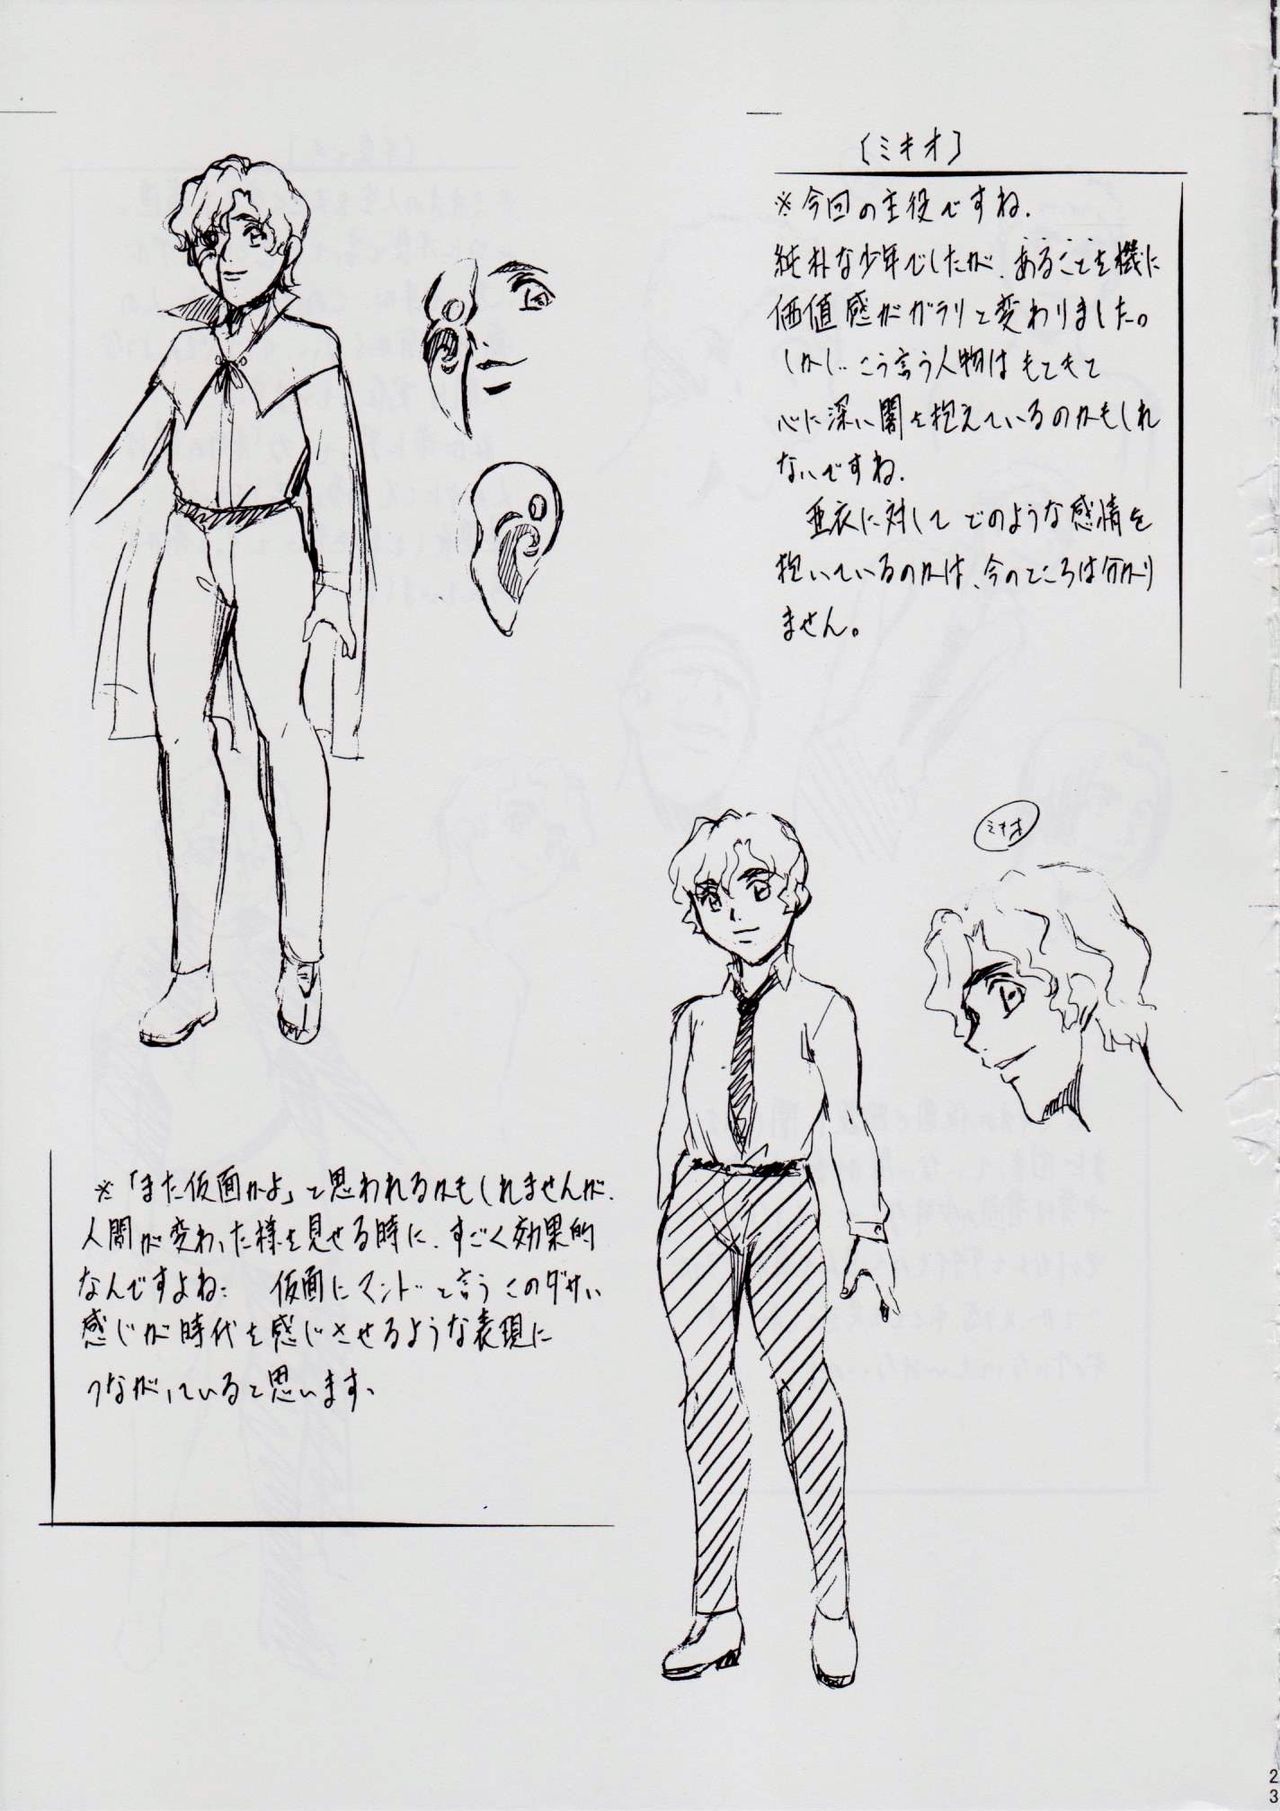 〔ミキオ〕
※今回の主役ですね.
純朴な少年でしたが、あることを機に
価値感がガラリと変わりました。
しかし‥こう言う人物はもてもて
心に深い闇を抱えているのかもしれ
ないですね.
亜衣に対してどのような感情を
抱いているのかは、今のところは分かり
ません。
ミキオ
※「また仮面かよ」と思われるかもしれませんが、
人間が変わった様を見せる時に、すごく効果的
なんですよね:　仮面にマント‥と言うこのダサい
感じが時代を感じさせるような表現に
つながっていると思います、
23